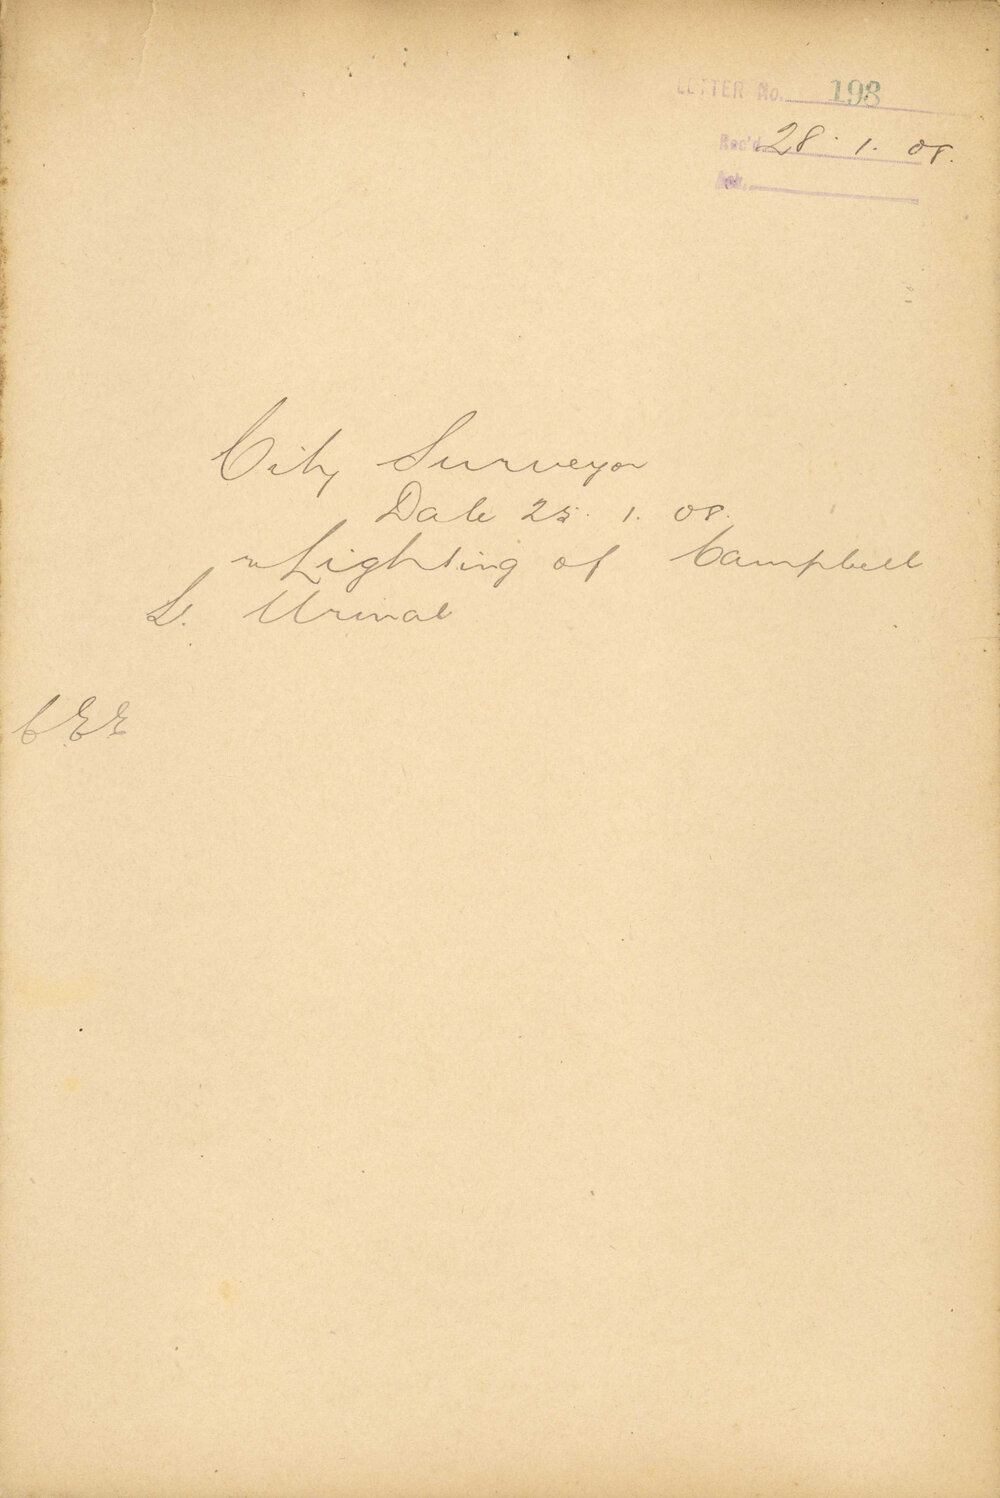 LETTER No. 198
Rec'd 28. 1. 08.
Ack.
City Surveyor
Date 25. 1. 08.
re Lighting of Campbell
St. Urinal
CEE